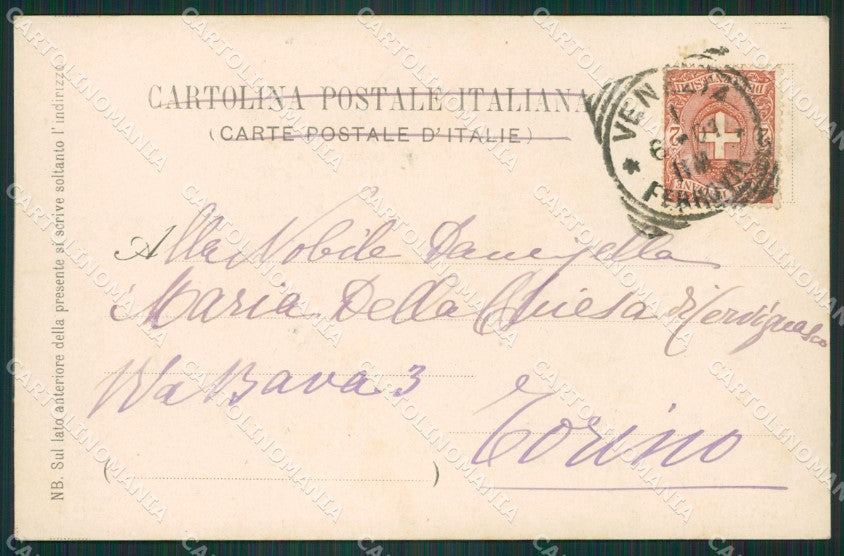 CARTOLINA POSTALE ITALIANA
(CARTE POSTALE D'ITALIE)
VENEZIA
FERROVIA
2 2
Alla Nobile Damigella
Maria Della Chiesa di Cervignasco
Via Bava 3
Torino
NB. Sul lato anteriore della presente si scrive soltanto l'indirizzo.
CARTOLINOMANIA